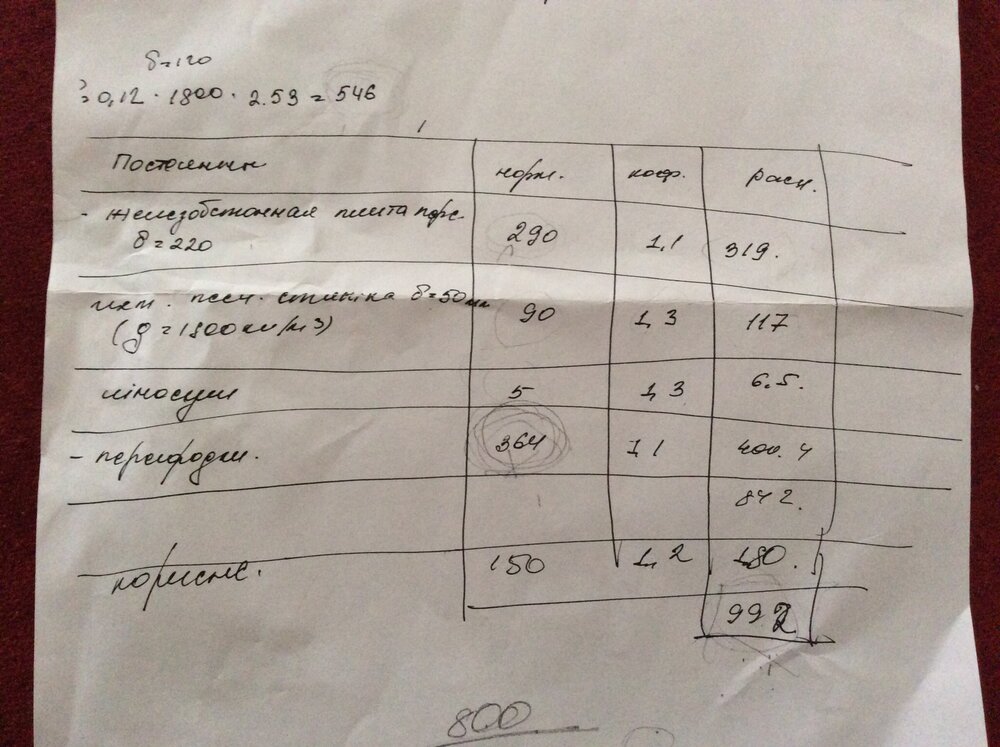 δ=120
0,12 · 1800 · 2.53 = 546
Постоянные норм. коэф. расч.
- железобетонная плита
δ=220 290 1,1 319.
стяжка δ=50мм
(g=1800кг/м3) 90 1,3 117
5 1,3 6.5.
- перегородки. 364 1 1 400.4
842.
корисне. 150 1,2 180.
992
800